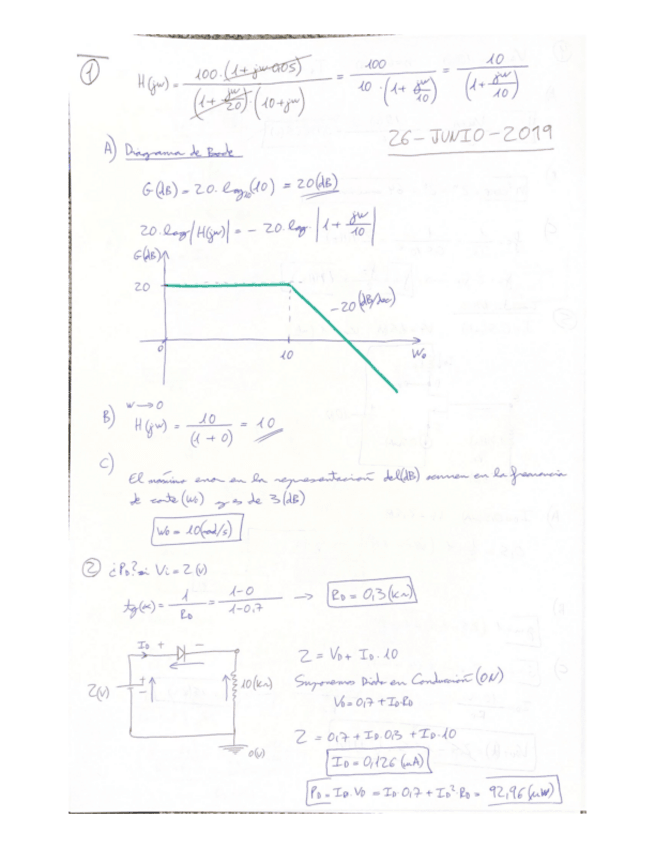 1 H(jw) = 100·(1+jw 0,05) / (1+jw/20)·(10+jw) = 100 / 10·(1+jw/10) = 10 / (1+jw/10)
26-JUNIO-2019
A) Diagrama de Bode
G(dB) = 20·log10(10) = 20(dB)
20·log|H(jw)| = -20·log|1+jw/10|
G(dB)
20
-20(dB/dec)
0 10 W0
w→0
B) H(jw) = 10/(1+0) = 10
C)
El máximo error en la representación del(dB) ocurre en la frecuencia
de corte(w0) y es de 3(dB)
W0 = 10(rad/s)
2 ¿PD? si Vi = 2(V)
tg(α) = 1/RD = 1-0/1-0,7 → RD = 0,3(kΩ)
ID + -
2(V) + - 10(kΩ)
0(V)
2 = VD + ID·10
Suponemos Diodo en Conducción(ON)
VD = 0,7 + ID·RD
2 = 0,7 + ID·0,3 + ID·10
ID = 0,126(mA)
PD = ID·VD = ID·0,7 + ID²·RD = 92,96(μW)